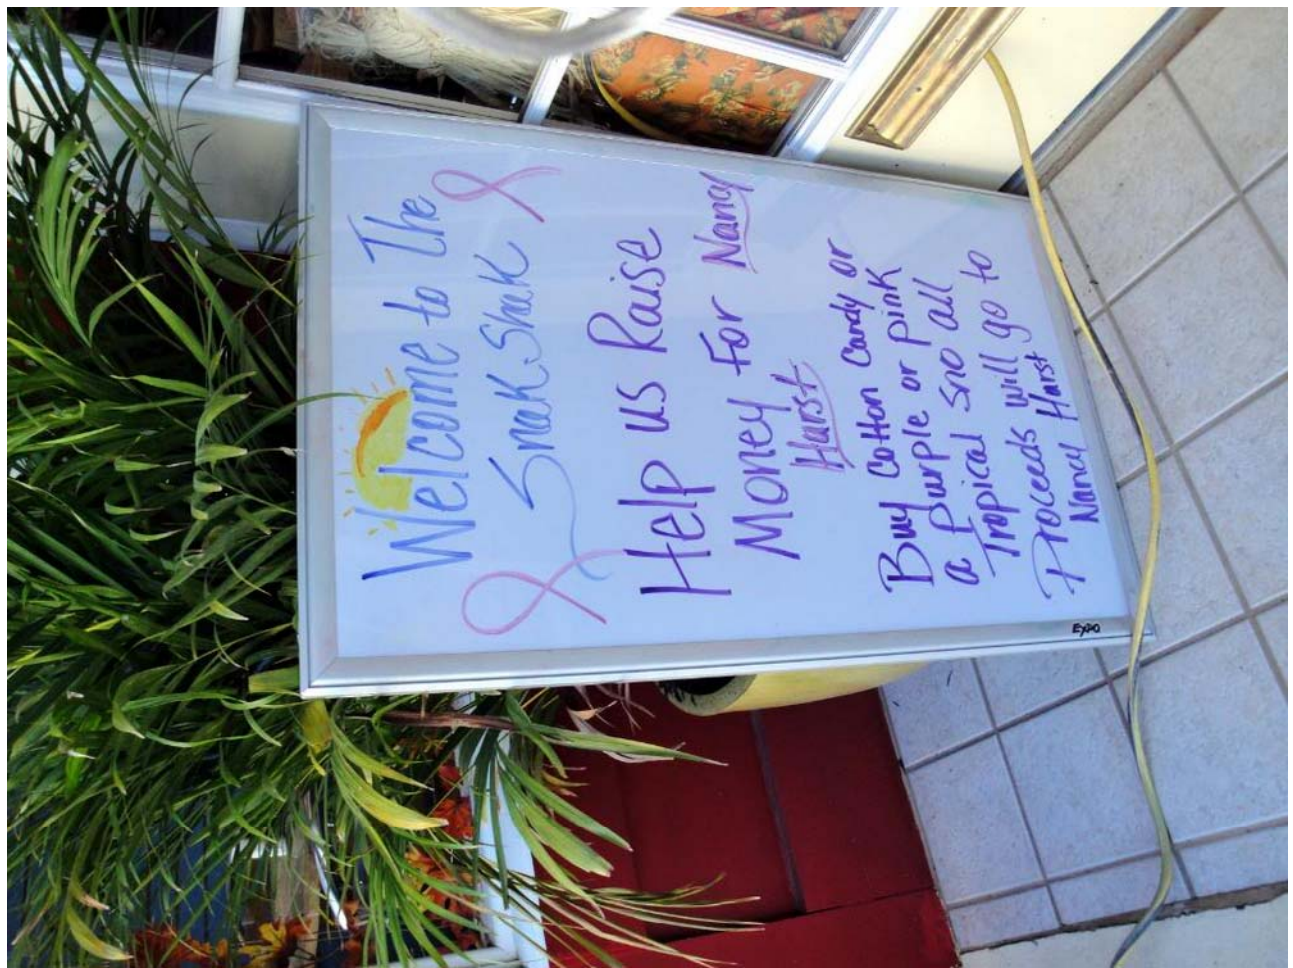 Welcome to The
Snak Shak
Help us Raise
Money For Nancy
Harst
Buy Cotton Candy or
a purple or pink
Tropical Sno all
Proceeds will go to
Nancy Harst
EXPO